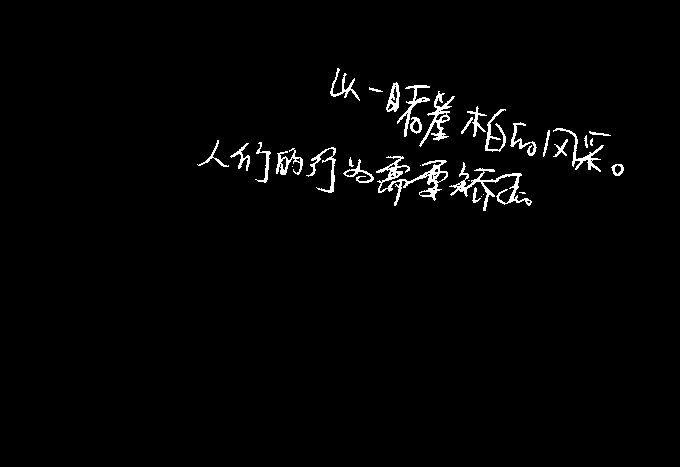 以一睹崖柏的风采。
人们的行为需要矫正。